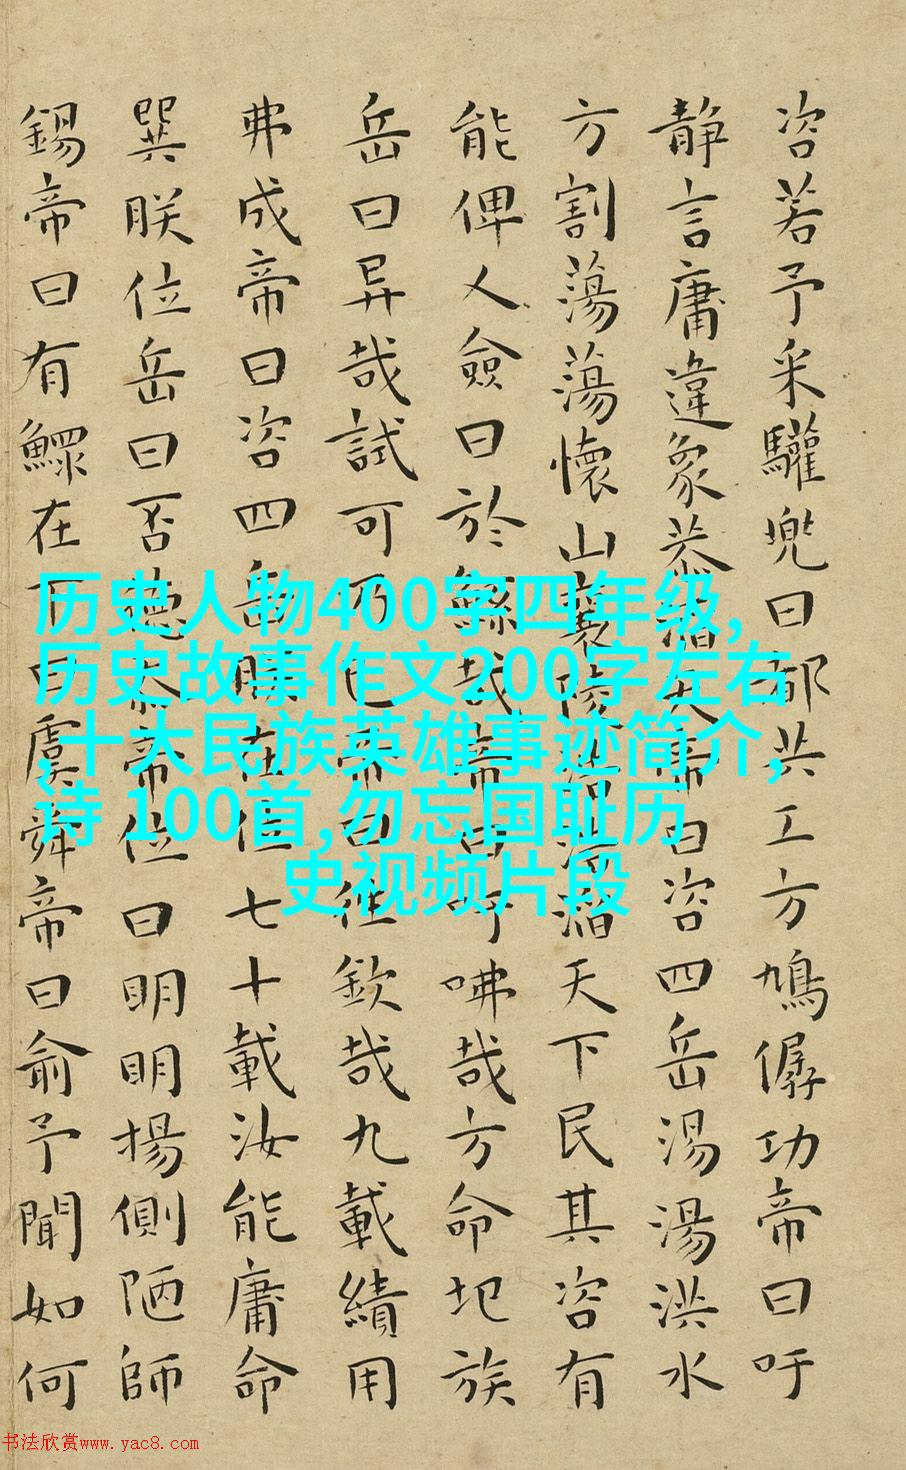 咨若予采驩兜曰都共工方鳩僝功帝曰吁
静言庸違象恭滔天帝曰咨四岳湯湯洪水
方割蕩蕩懷山襄陵浩浩滔天下民其咨有
能俾乂僉曰於鯀哉帝曰吁咈哉方命圮族
岳曰异哉試可乃已帝曰往欽哉九載績用
弗成帝曰咨四岳朕在位七十載汝能庸命
巽朕位岳曰否德忝帝位曰明明揚側陋師
錫帝曰有鰥在下曰虞舜帝曰俞予聞如何
历史人物400字四年级,
历史故事作文200字左右
,十大民族英雄事迹简介,
诗 100首,勿忘国耻历
史视频片段
书法欣赏www.yac8.com